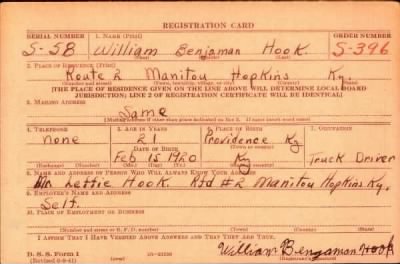 REGISTRATION CARD
SERIAL NUMBER 1. NAME (Print) ORDER NUMBER
S-58 William Benjaman Hook S-396
2. PLACE OF RESIDENCE (Print)
Route 2 Manitou Hopkins Ky.
[THE PLACE OF RESIDENCE GIVEN ON THE LINE ABOVE WILL DETERMINE LOCAL BOARD
JURISDICTION; LINE 2 OF REGISTRATION CERTIFICATE WILL BE IDENTICAL]
3. MAILING ADDRESS
Same
[Mailing address if other than place indicated on line 2. If same insert word same]
4. TELEPHONE 5. AGE IN YEARS 6. PLACE OF BIRTH 7. OCCUPATION
none 21 Providence Ky
DATE OF BIRTH
Feb 15 1920 Ky Truck Driver
8. NAME AND ADDRESS OF PERSON WHO WILL ALWAYS KNOW YOUR ADDRESS
Lettie Hook. Rfd #2 Manitou Hopkins Ky.
9. EMPLOYER'S NAME AND ADDRESS
Self.
10. PLACE OF EMPLOYMENT OR BUSINESS
(Number and street or R. F. D. number) (Town) (County) (State)
I AFFIRM THAT I HAVE VERIFIED ABOVE ANSWERS AND THAT THEY ARE TRUE.
D. S. S. Form 1 William Bengaman Hook